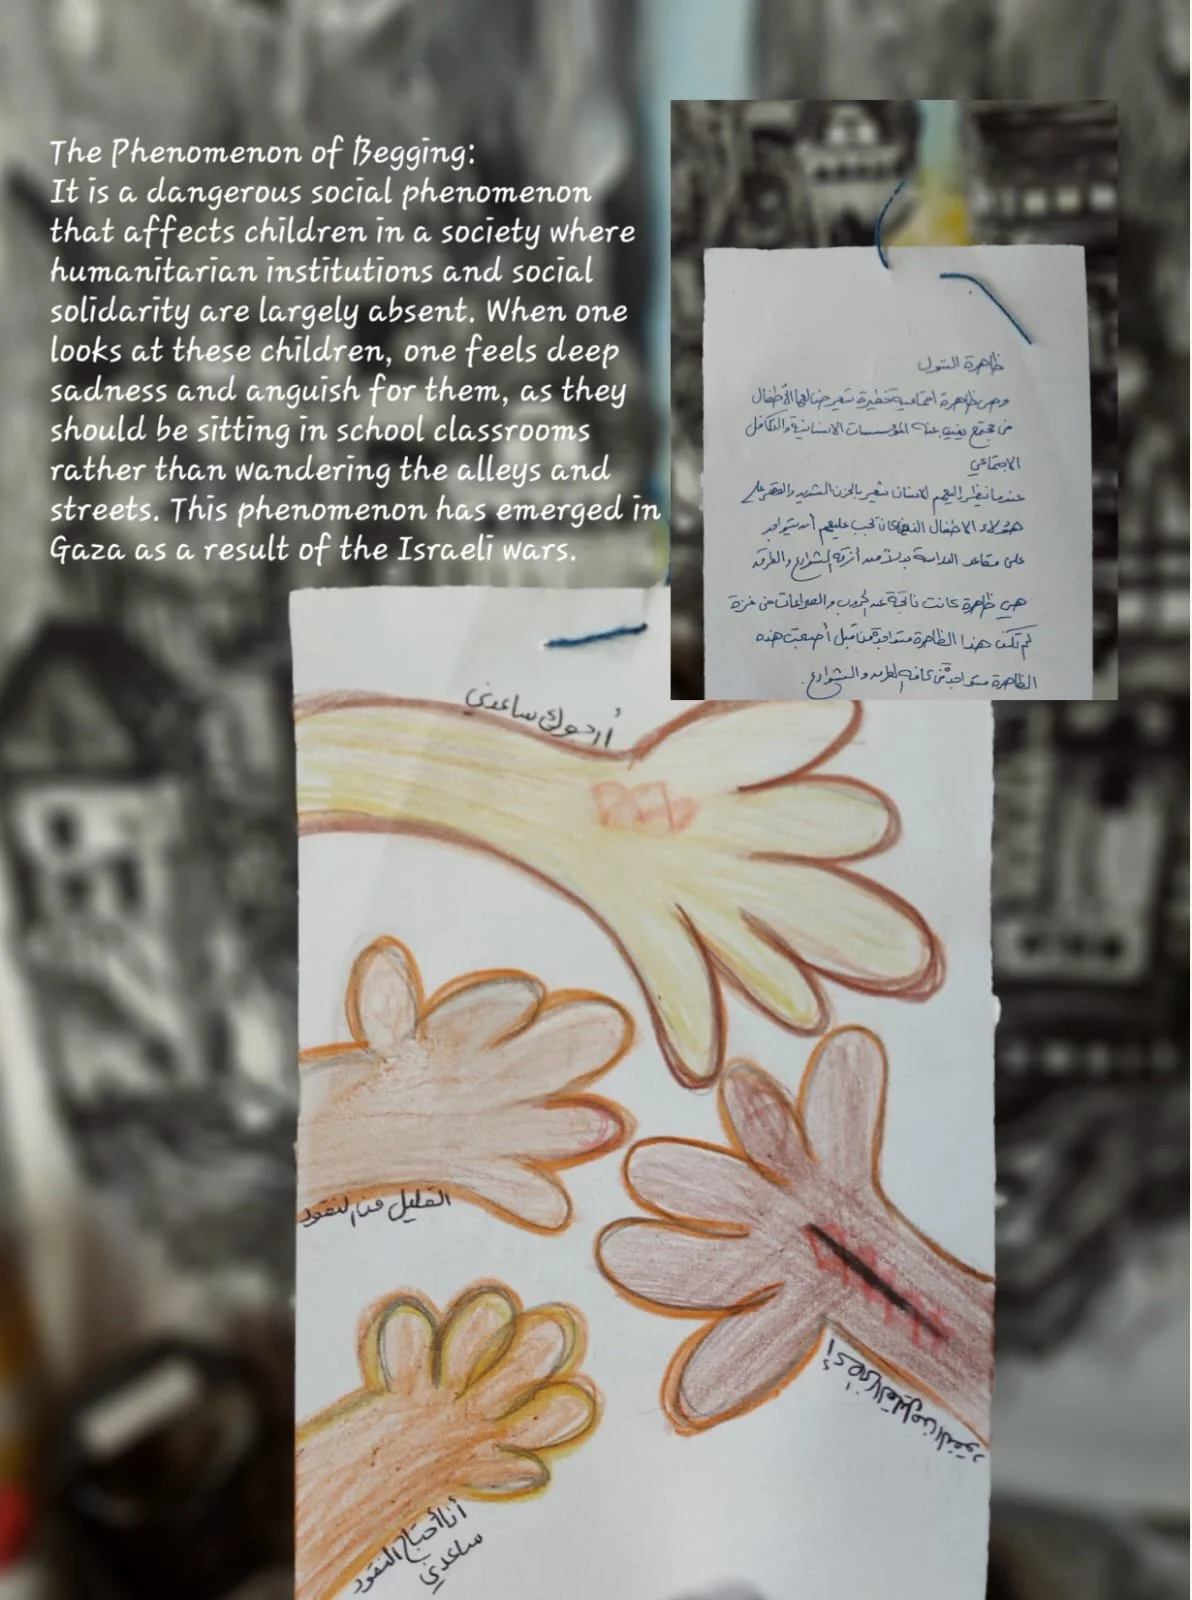 The Phenomenon of Begging:
It is a dangerous social phenomenon
that affects children in a society where
humanitarian institutions and social
solidarity are largely absent. When one
looks at these children, one feels deep
sadness and anguish for them, as they
should be sitting in school classrooms
rather than wandering the alleys and
streets. This phenomenon has emerged in
Gaza as a result of the Israeli wars.
ظاهرة التسول
وهي ظاهرة اجتماعية خطيرة تعرض لها الأطفال
في مجتمع يغيب عنه المؤسسات الانسانية والتكافل
الاجتماعي
عندما ينظر إليهم الانسان شعر بالحزن الشديد والقهر على
هؤلاء الاطفال الذي كان يجب عليهم أن يتواجد
على مقاعد الدراسة بدلاً من أزقة الشوارع والطرق
هي ظاهرة كانت ناتجة عن الحروب والصراعات في غزة
لم تكن هذا الظاهرة متواجدة من قبل أصبحت هذه
الظاهرة متواجدة في كافه الطرق والشوارع.
أرجوك ساعدني
القليل من النقود
القليل من النقود
أنا أحتاج النقود
ساعدني